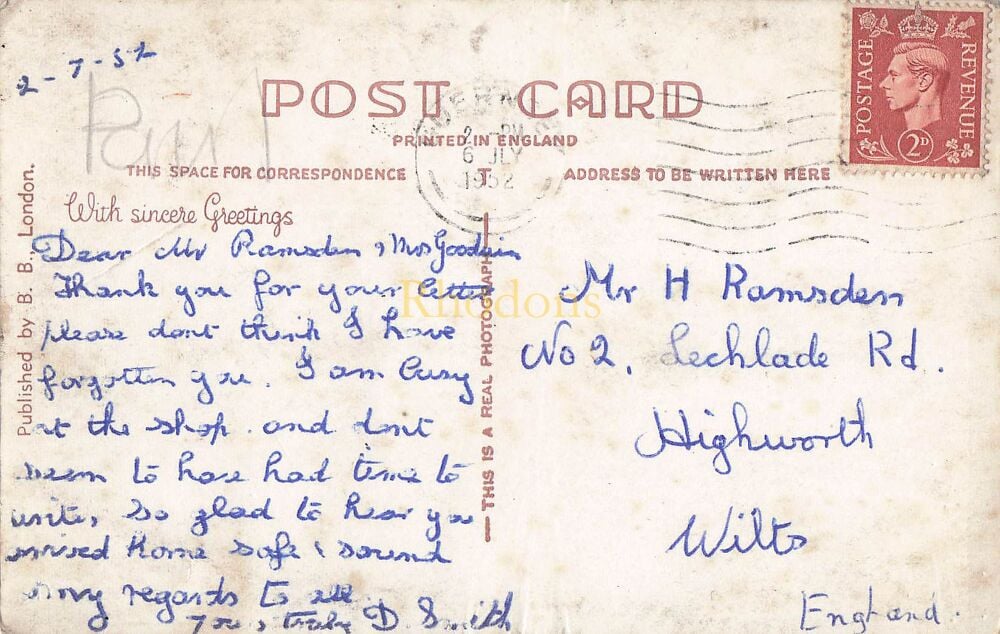 2-7-52
POST CARD
PRINTED IN ENGLAND
THIS SPACE FOR CORRESPONDENCE
ADDRESS TO BE WRITTEN HERE
With sincere Greetings
Dear Mr Ramsden & Mrs Goodwin
Thank you for your letter
please dont think I have
forgotten you. I am busy
at the shop and dont
seem to have had time to
write, so glad to hear you
arrived Home safe & sound
my regards to all.
yours truly D. Smith
Mr H Ramsden
No 2. Lechlade Rd.
Highworth
Wilts
England.
Published by B. B., London.
— THIS IS A REAL PHOTOGRAPH
2 PM
6 JLY
1952
POSTAGE
REVENUE
2D
Rhodons